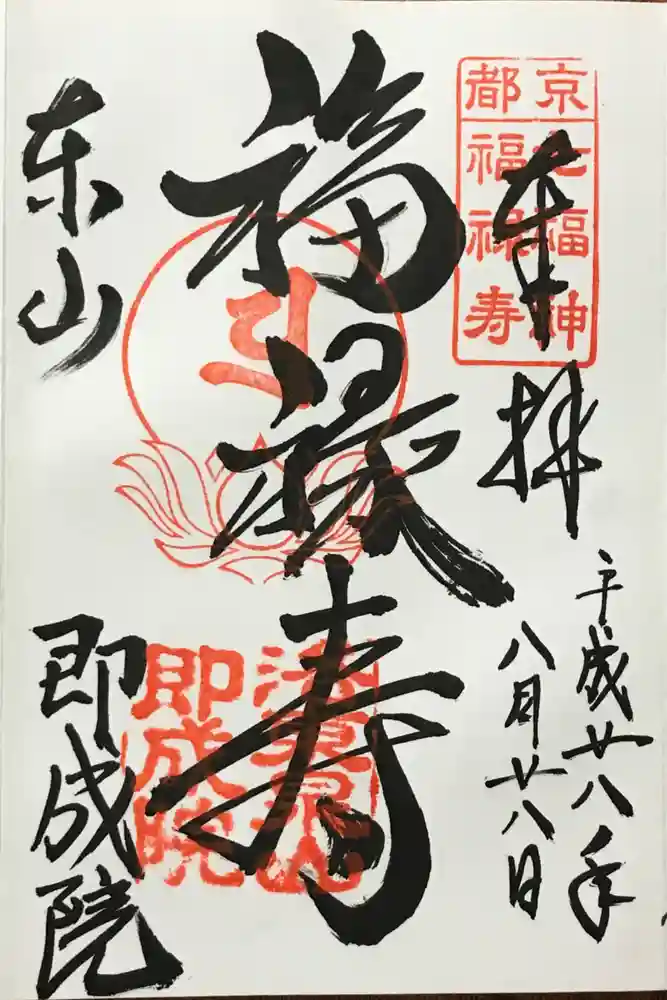 奉拝
平成廿八年
八月廿八日
京都
七福神
福禄寿
福禄寿
东山
即成院
即成院